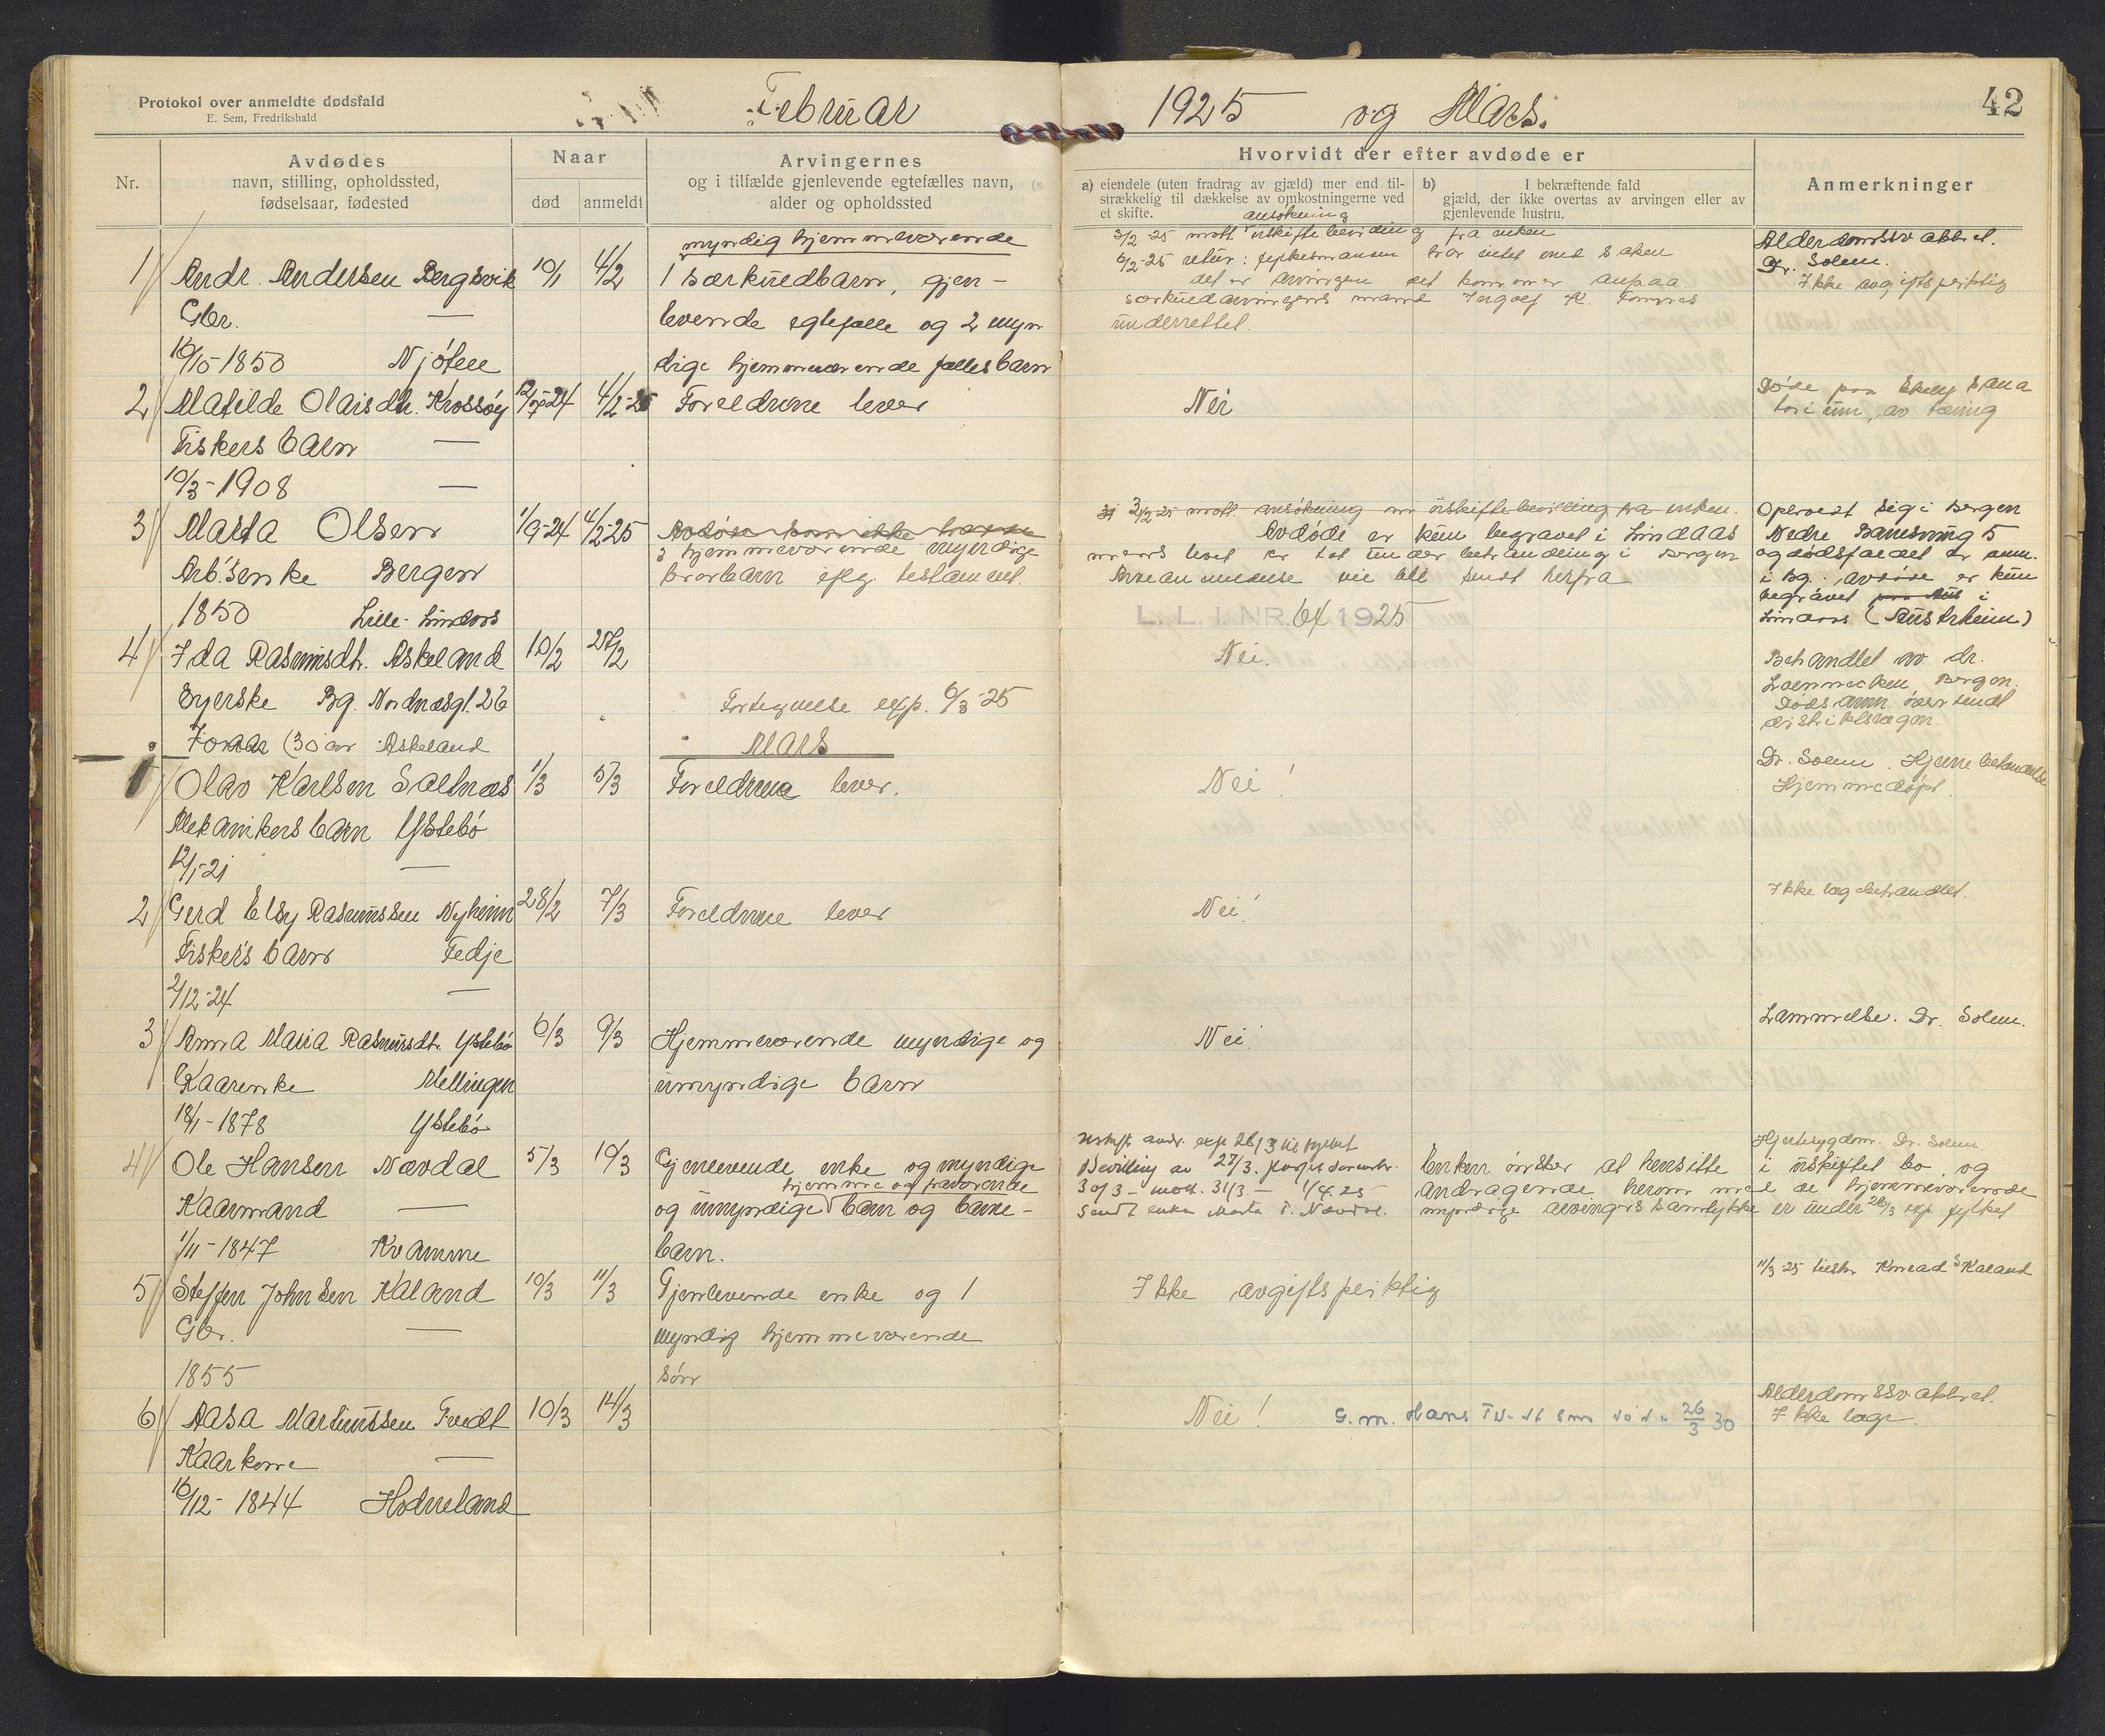 Protokol over anmeldte dødsfald
E. Sem, Fredrikshald
Februar
1925 og Mars.
42
Nr.
Avdødes
navn, stilling, opholdssted,
fødselsaar, fødested
Naar
død
anmeldt
Arvingernes
og i tilfælde gjenlevende egtefælles navn,
alder og opholdssted
Hvorvidt der efter avdøde er
a) eiendele (uten fradrag av gjæld) mer end til-
strækkelig til dækkelse av omkostningerne ved
et skifte.
b) I bekræftende fald
gjæld, der ikke overtas av arvingen eller av
gjenlevende hustru.
Anmerkninger
1 Andr. Andersen Bergsvik 10/1 4/2
Gbr. —
16/10 1850 Njøten
myndig hjemmeværende
1 særkuldbarn, gjen-
levende egtefælle og 2 myn
dige hjemmeværende fællesbarn
ansøkning
3/2-25 mott uskiftebevilling fra enken
6/2-25 retur: fylkesmanen har intet med saken
det er arvingen det kommer anpaa
særkuldarvingens mand Ingolf K.
underrettet.
Alderdomssvakket.
Dr. Solem.
Ikke avgiftspliktig
2 Matilde Olaisdtr. Krossøy 4/2-25
Fiskers barn —
10/3-1908 —
Foreldrene lever
Nei
Døde paa Sana
torium, av tæring
3 Marta Olsen 1/9-24 4/2-25
Arb.enke Bergen
1850 Lille-Lindaas
Avdøde som ikke
3 hjemmeværende myndige
brorbarn iflg. testament.
3/2-25 mott. ansøkning om uskiftebevilling fra enken.
Avdøde er kun begravet i Lindaas
mens boet er tat under behandling i Bergen
vil bli sendt herfra
L. L. I. NR. 64 1925
Opholdt sig i Bergen
Nedre 5
og dødsfaldet er anm.
i Bg. avdøde er kun
begravet i
Lindaas (Austrheim)
4 Ida Rasmusdtr. Askeland 10/2
Syerske Bg. Nordnæsgt. 26
(30 aar Askeland
Fortegnelse exp. 6/3-25
Nei.
Behandlet av dr.
Bergen.
Dødsanm. oversendt
distriktslægen.
MARS
1 Olav Karlsen Saltnæs 1/3 5/3
Mekanikers barn Ystebø
12/1-21 —
Foreldrene lever.
Nei!
Dr. Solem. Hjernebetændelse
Hjemmedøpt.
2 Gerd Elsy Rasmussen Nyheim 28/2 7/3
Fiskers barn Fedje
2/12-24 —
Foreldrene lever
Nei!
Ikke lægebehandlet.
3 Anna Maria Rasmusdtr. Ystebø 6/3 9/3
Kaarenke Mellingen
18/1-1878 Ystebø
Hjemmeværende myndige og
umyndige barn
Nei!
Lammelse. Dr. Solem.
4 Ole Hansen Nævdal 5/3 10/3
Kaarmand —
1/11-1847 Kvamme
Gjenlevende enke og myndige
hjemme og fraværende
og umyndige barn og barne-
barn.
Uskift. andr. exp 26/3 til fylket
Bevilling av 27/3.
30/3 - mott. 31/3. — 1/4.25
Sendt enke Marta Nævdal.
Enken ønsker at hensitte i uskiftet bo, og
andragende herom med de hjemmeværende
myndige arvingers samtykke er under 26/3 exp. fylket
Hjertesygdom. Dr. Solem
5 Steffen Johnsen Kaland 10/3 11/3
Gbr. —
1855
Gjenlevende enke og 1
myndig hjemmeværende
søn
Ikke avgiftspliktig
11/3-25 Konrad S Kaland
6 Aasa Martinussen Tvedt 10/3 14/3
Kaarkone —
16/12-1844 Hodneland
Nei!
G. m. Hans Tvedt som døde 26/3 30
Alderdomssvakket.
Ikke læge.